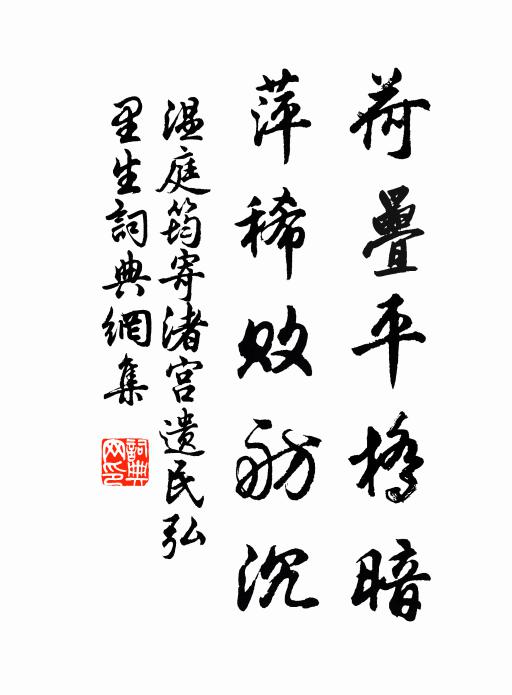 荷疊平橋暗
萍稀敗舫沉
溫庭筠寄渚宮遺民弘
里生詞典網集
詞典
网印